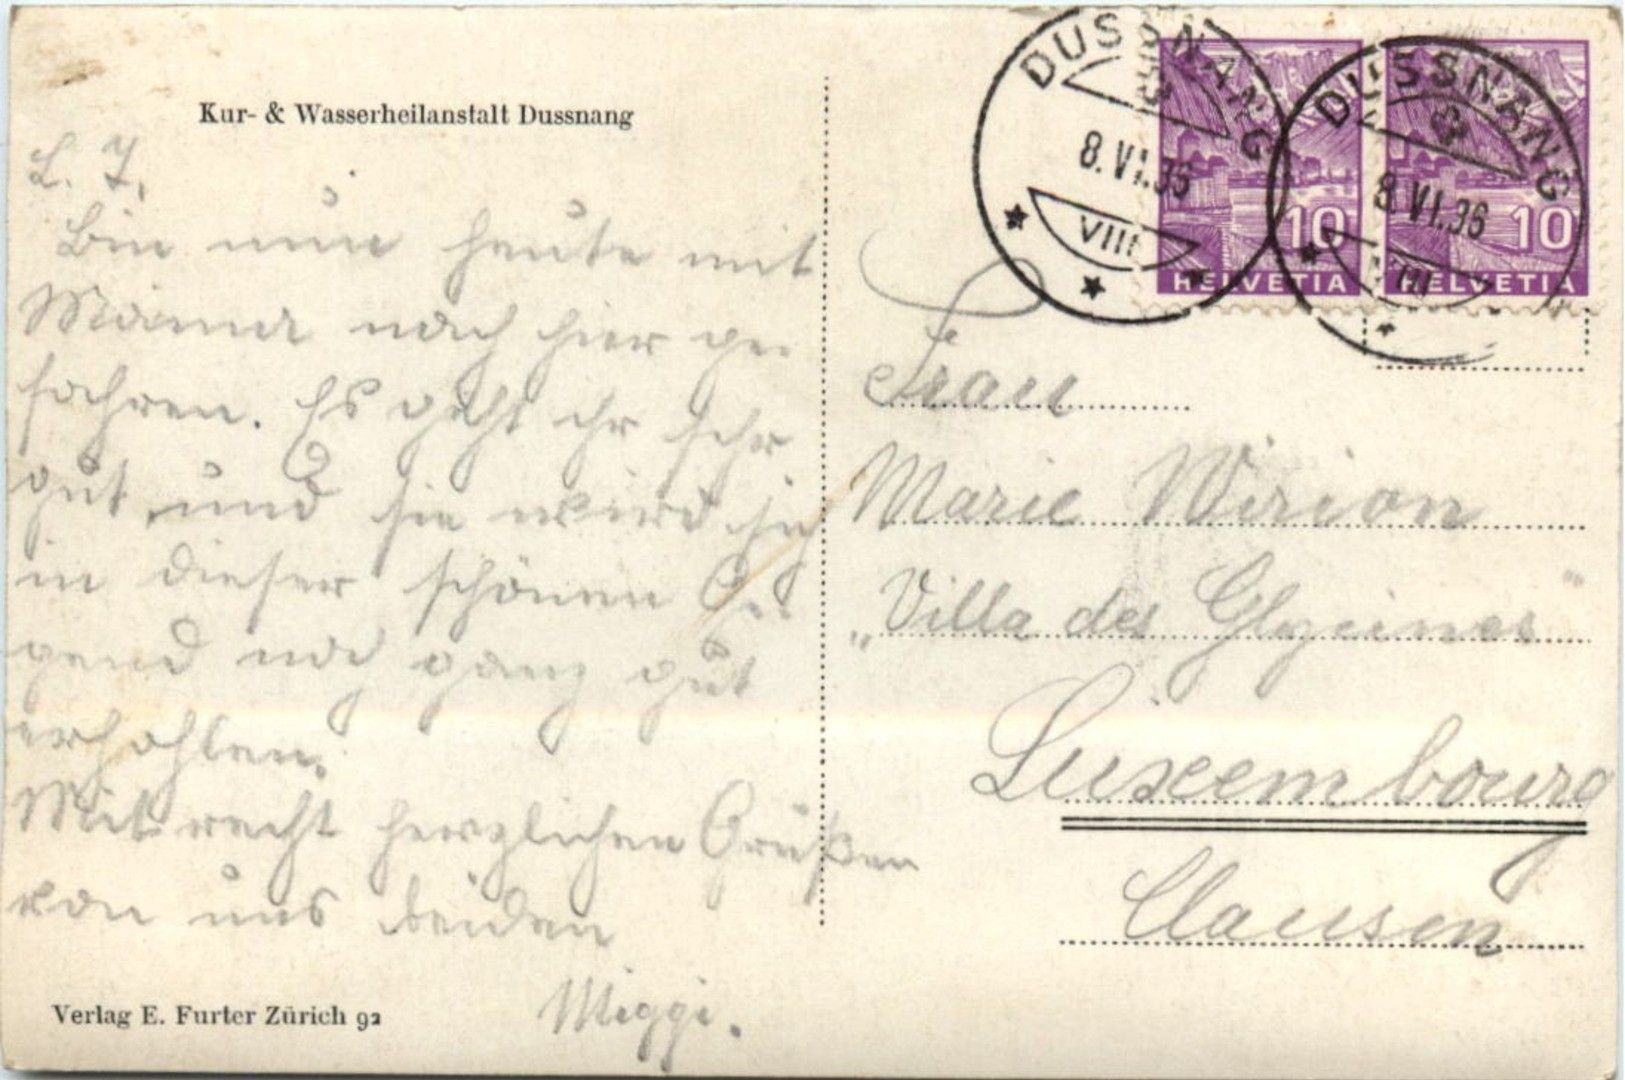 Kur- & Wasserheilanstalt Dussnang
L. T.
Bin nun heute mit
Mamma nach hier ge-
fahren. Es geht ihr sehr
gut und sie wird sich
in dieser schönen Ge-
gend noch ganz gut
erhohlen.
Mit recht herzlichen Grüßen
von uns beiden
Miggi.
Verlag E. Furter Zürich 92
DUSSNANG
8.VI.36
VIII
DUSSNANG
8.VI.36
VIII
10
HELVETIA
10
HELVETIA
Frau
Marie Wirion
"Villa des Glycines"
Luxembourg
Clausen